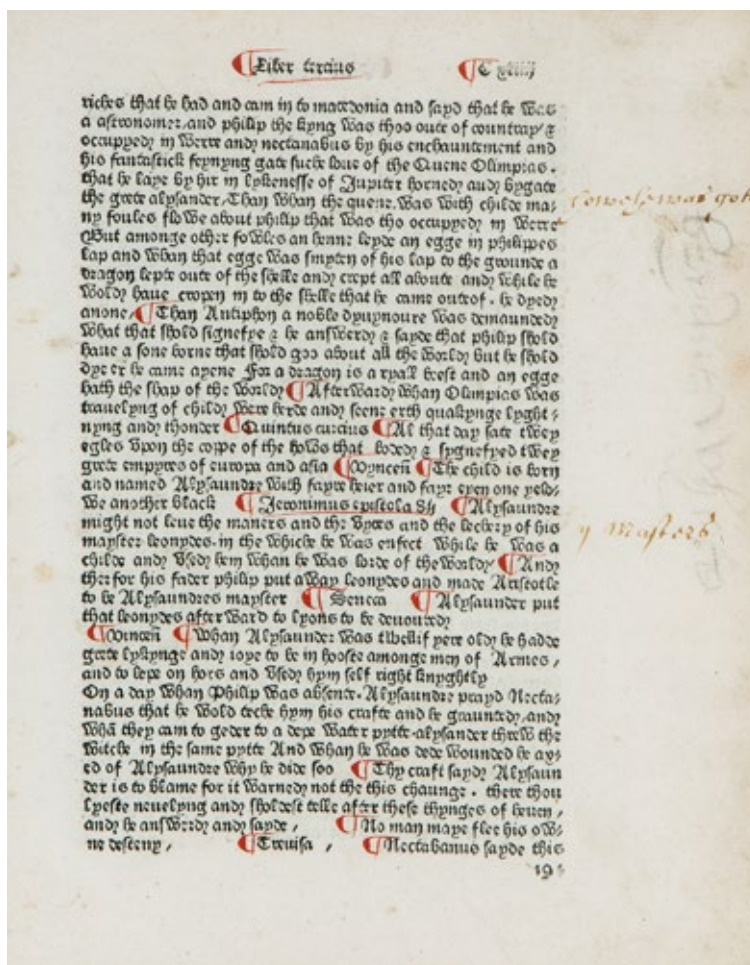 ¶Liber tercius ¶C xliiij
riches that he had and cam in to macedonia and sayd that he was
a astronomer, and philip the kyng was thoo oute of countray / &
occupyed in werre and nectanabus by his enchauntement and
his fantastick feynyng gate suche loue of the Quene Olimpias.
that he laye by hir in lyknesse of Jupiter horned and bygate
the grete alysander, Than whan the quene. was with childe ma-
ny foules flowe about philip that was tho occupyed in werre
But amonge other fowles an henne leyde an egge in philippes
lap and whan that egge was smyten of his lap to the grounde a
dragon lepte oute of the shelle and crept all aboute and while he
wold haue cropen in to the shelle that he came oute of. he dyed
anone, ¶Than Antiphon a noble dyuynoure was demaunded
what that shold signefye & he answerd & sayde that philip shold
haue a sone borne that shold goo about all the world but he shold
dye er he came ayene For a dragon is a ryall beest and an egge
hath the shap of the world ¶Afterward whan Olimpias was
trauelyng of child were herde and seene erth quakynge lyght-
nyng and thonder ¶Quintus curcius ¶Al that day sate twey
egles vpon the coppe of the hows that boded & sygnefyed twey
grete empyres of europa and asia ¶Vyncen̄ ¶The child is born
and named Alysaundre with fayre heier and fayr eyen one yelo-
we another black ¶Jeronimus epistola 84 ¶Alysaundre
might not leue the maners and the vyces and the leckery of his
mayster leonydes. in the whiche he was enfect while he was a
childe and vsed hem whan he was lorde of the world / ¶And
ther for his fader philip put away leonydes and made Aristotle
to be Alysaundres mayster ¶Seneca ¶Alysaunder put
that leonydes afterward to lyons to be deuoured
¶Vincen̄ ¶Whan Alysaunder was twellif yere old he hadde
grete lykynge and ioye to be in hooste amonge men of Armes,
and to lepe on hors and vsed hym self right knyghtly
On a day whan Philip was absente. Alysaundre prayd Necta-
nabus that he wold teche hym his crafte and he graunted, and
whā they cam to geder to a depe water pytte. alysander threw the
witche in the same pytte And whan he was dede wounded he ax-
ed of Alysaundre why he dide soo ¶Thy craft sayd Alysaun
der is to blame for it warned not the this chaunge. there thou
lyeste neuelyng and sholdest telle after these thynges of heuen,
and he answerd and sayde, ¶No man maye flee his ow-
ne desteny, ¶Treuisa, ¶Nectabanus sayde this
19
masters